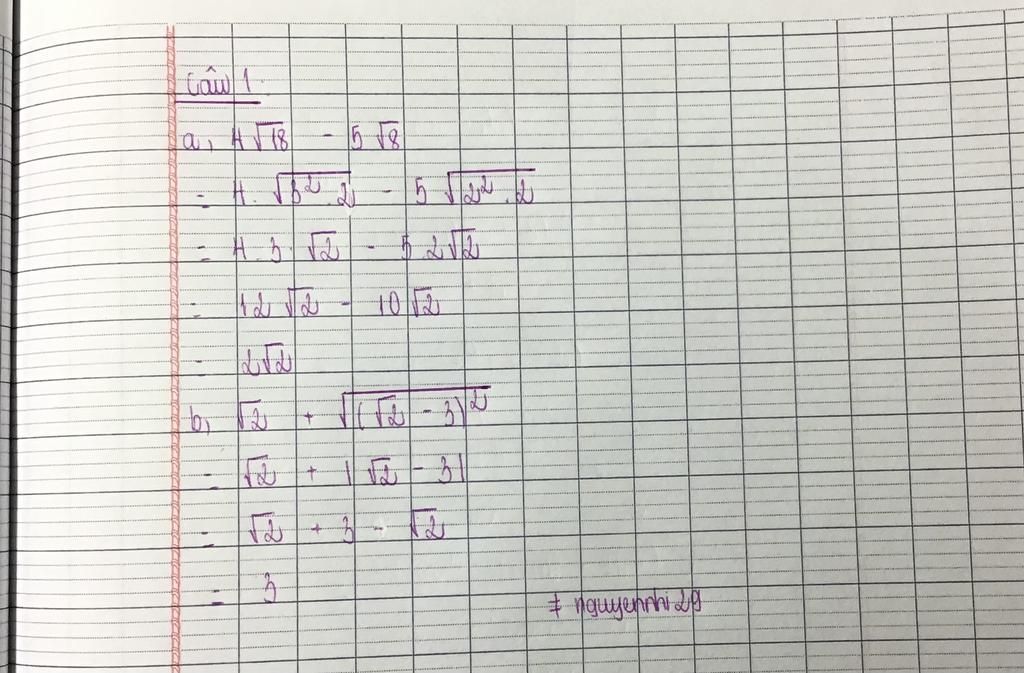 Câu 1
a, 4√18 - 5√8
= 4.√(3².2) - 5√(2².2)
= 4.3.√2 - 5.2√2
= 12√2 - 10√2
= 2√2
b, √2 + √((√2 - 3)²)
= √2 + |√2 - 3|
= √2 + 3 - √2
= 3
# nguyennhi29